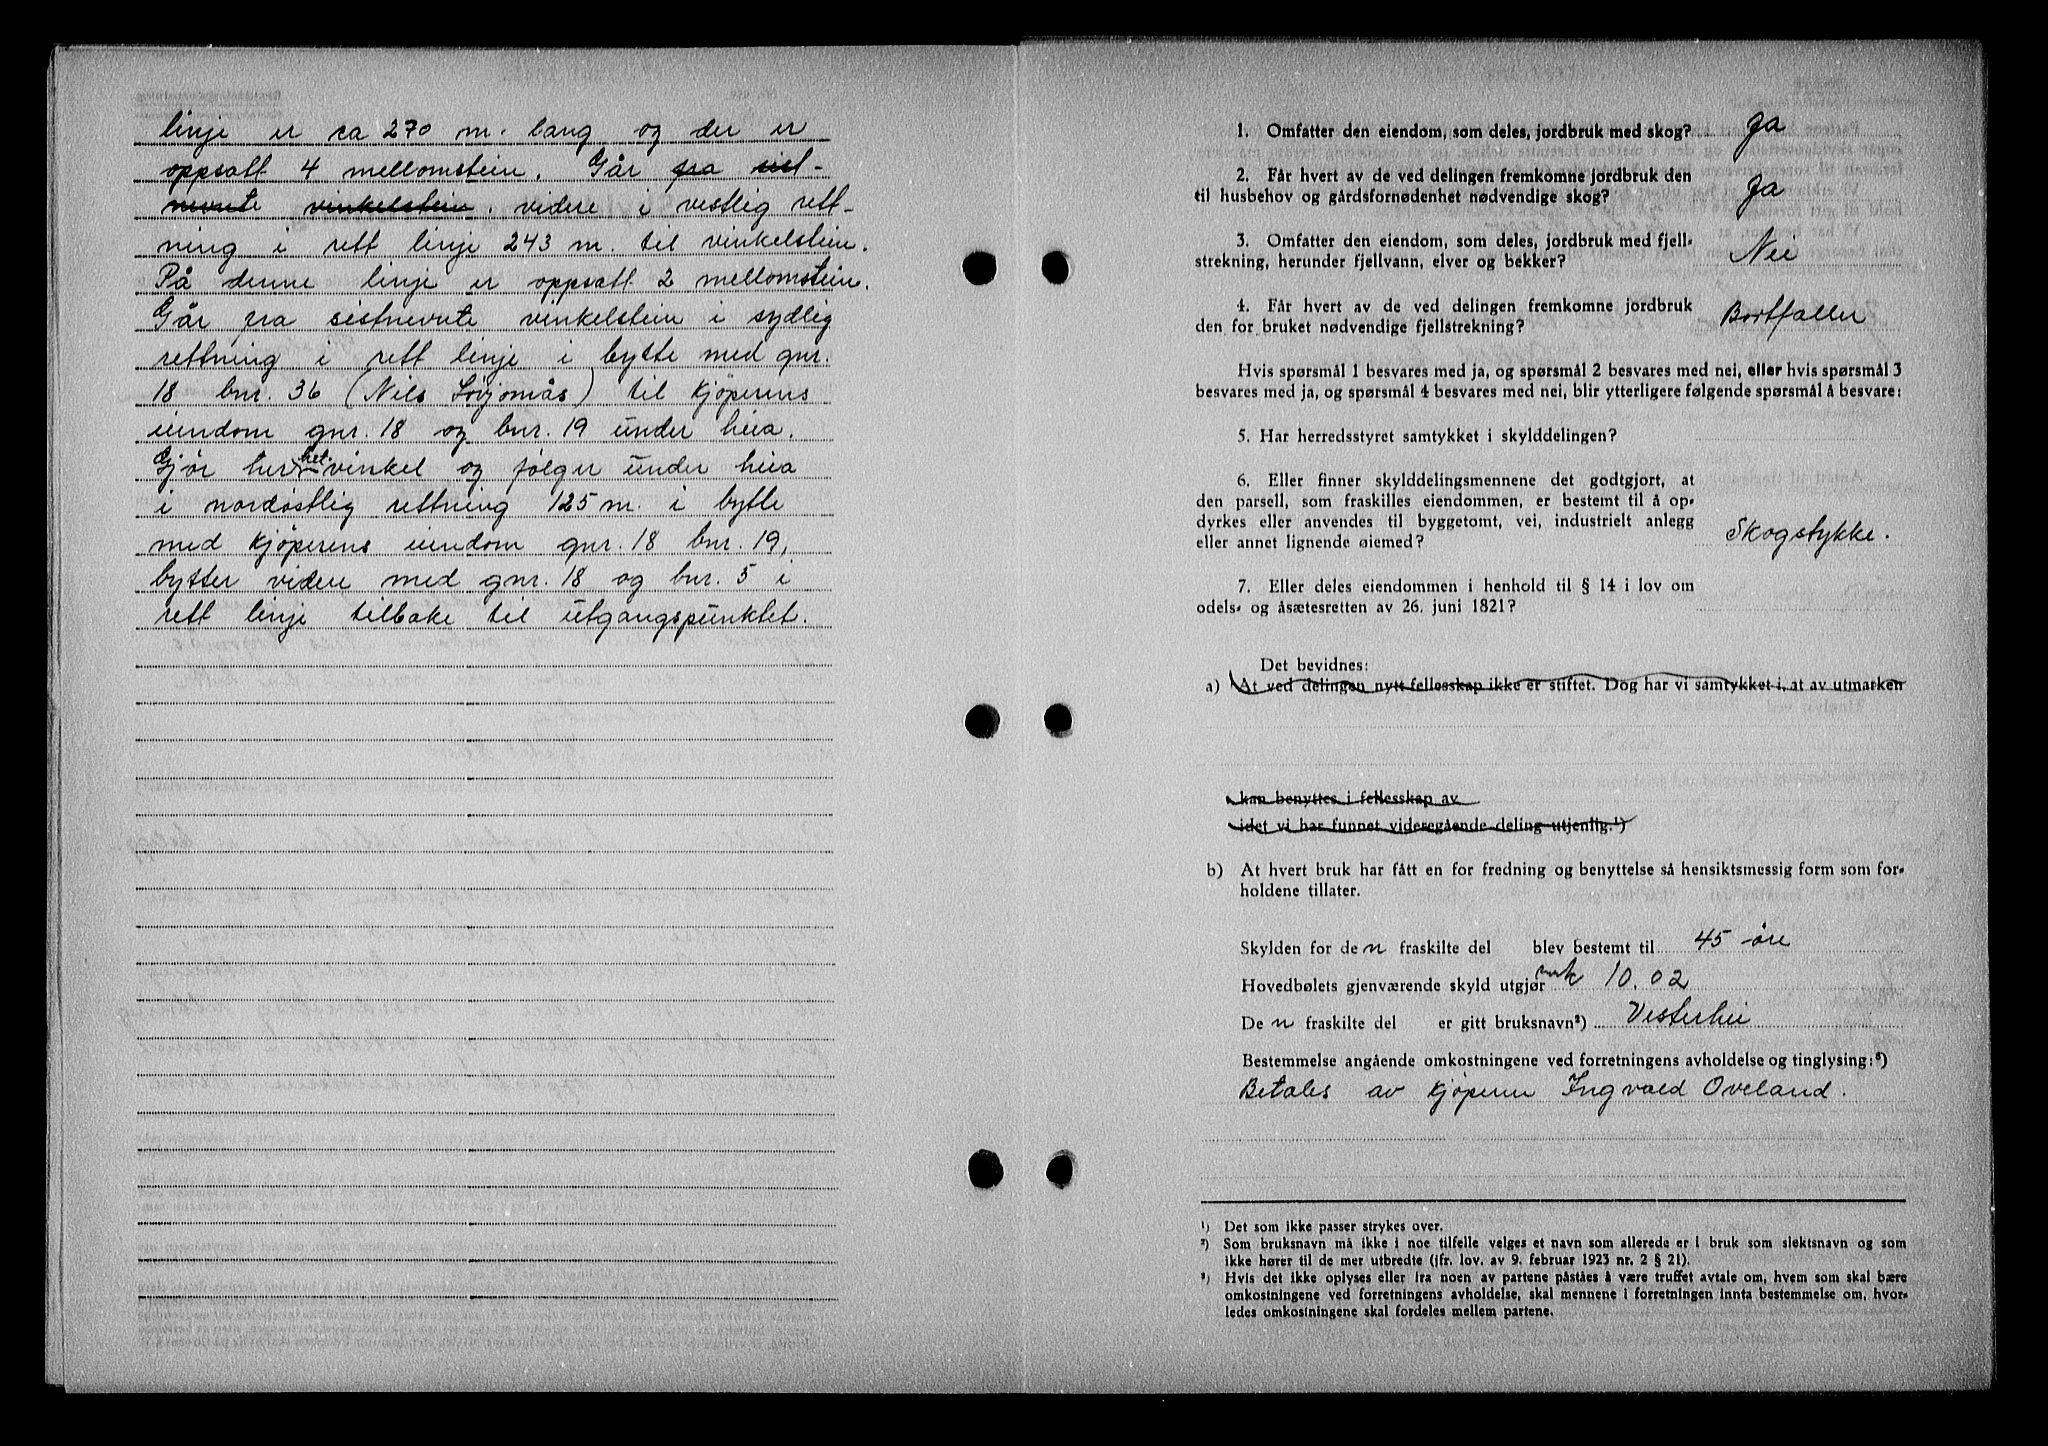 linje er ca 270 m. lang og der er
oppsatt 4 mellomstein. Går fra sist-
nevnte vinkelstein. videre i vestlig rett-
ning i rett linje 243 m. til vinkelstein.
På denne linje er oppsatt 2 mellomstein.
Går fra sistnevnte vinkelstein i sydlig
rettning i rett linje i bytte med gnr.
18 bnr. 36 (Nils) til kjöperens
eiendom gnr. 18 og bnr. 19 under heia.
Gjör her ret. vinkel og fölger under heia
i nordöstlig rettning 125 m. i bytte
med kjöperens eiendom gnr. 18 bnr. 19,
bytter videre med gnr. 18 og bnr. 5 i
rett linje tilbake til utgangspunktet.
1. Omfatter den eiendom, som deles, jordbruk med skog? Ja
2. Får hvert av de ved delingen fremkomne jordbruk den
til husbehov og gårdsfornødenhet nødvendige skog? Ja
3. Omfatter den eiendom, som deles, jordbruk med fjell-
strekning, herunder fjellvann, elver og bekker? Nei
4. Får hvert av de ved delingen fremkomne jordbruk
den for bruket nødvendige fjellstrekning? Bortfaller
Hvis spørsmål 1 besvares med ja, og spørsmål 2 besvares med nei, eller hvis spørsmål 3
besvares med ja, og spørsmål 4 besvares med nei, blir ytterligere følgende spørsmål å besvare:
5. Har herredsstyret samtykket i skylddelingen?
6. Eller finner skylddelingsmennene det godtgjort, at
den parsell, som fraskilles eiendommen, er bestemt til å op-
dyrkes eller anvendes til byggetomt, vei, industrielt anlegg
eller annet lignende øiemed? Skogstykke.
7. Eller deles eiendommen i henhold til § 14 i lov om
odels- og åsætesretten av 26. juni 1821?
Det bevidnes:
a) At ved delingen nytt fellesskap ikke er stiftet. Dog har vi samtykket i, at av utmarken
kan benyttes i fellesskap av
idet vi har funnet videregående deling utjenlig.¹)
b) At hvert bruk har fått en for fredning og benyttelse så hensiktsmessig form som for-
holdene tillater.
Skylden for de n fraskilte del blev bestemt til 45 öre
Hovedbølets gjenværende skyld utgjør mk 10.02
De n fraskilte del er gitt bruksnavn²) Vesterhei
Bestemmelse angående omkostningene ved forretningens avholdelse og tinglysing:³)
Betales av kjöperen Ingvald Oveland.
¹) Det som ikke passer strykes over.
²) Som bruksnavn må ikke i noe tilfelle velges et navn som allerede er i bruk som slektsnavn og som
ikke hører til de mer utbredte (jfr. lov. av 9. februar 1923 nr. 2 § 21).
³) Hvis det ikke oplyses eller fra noen av partene påståes å være truffet avtale om, hvem som skal bære
omkostningene ved forretningens avholdelse, skal mennene i forretningen innta bestemmelse om, hvor-
ledes omkostningene skal fordeles mellem partene.